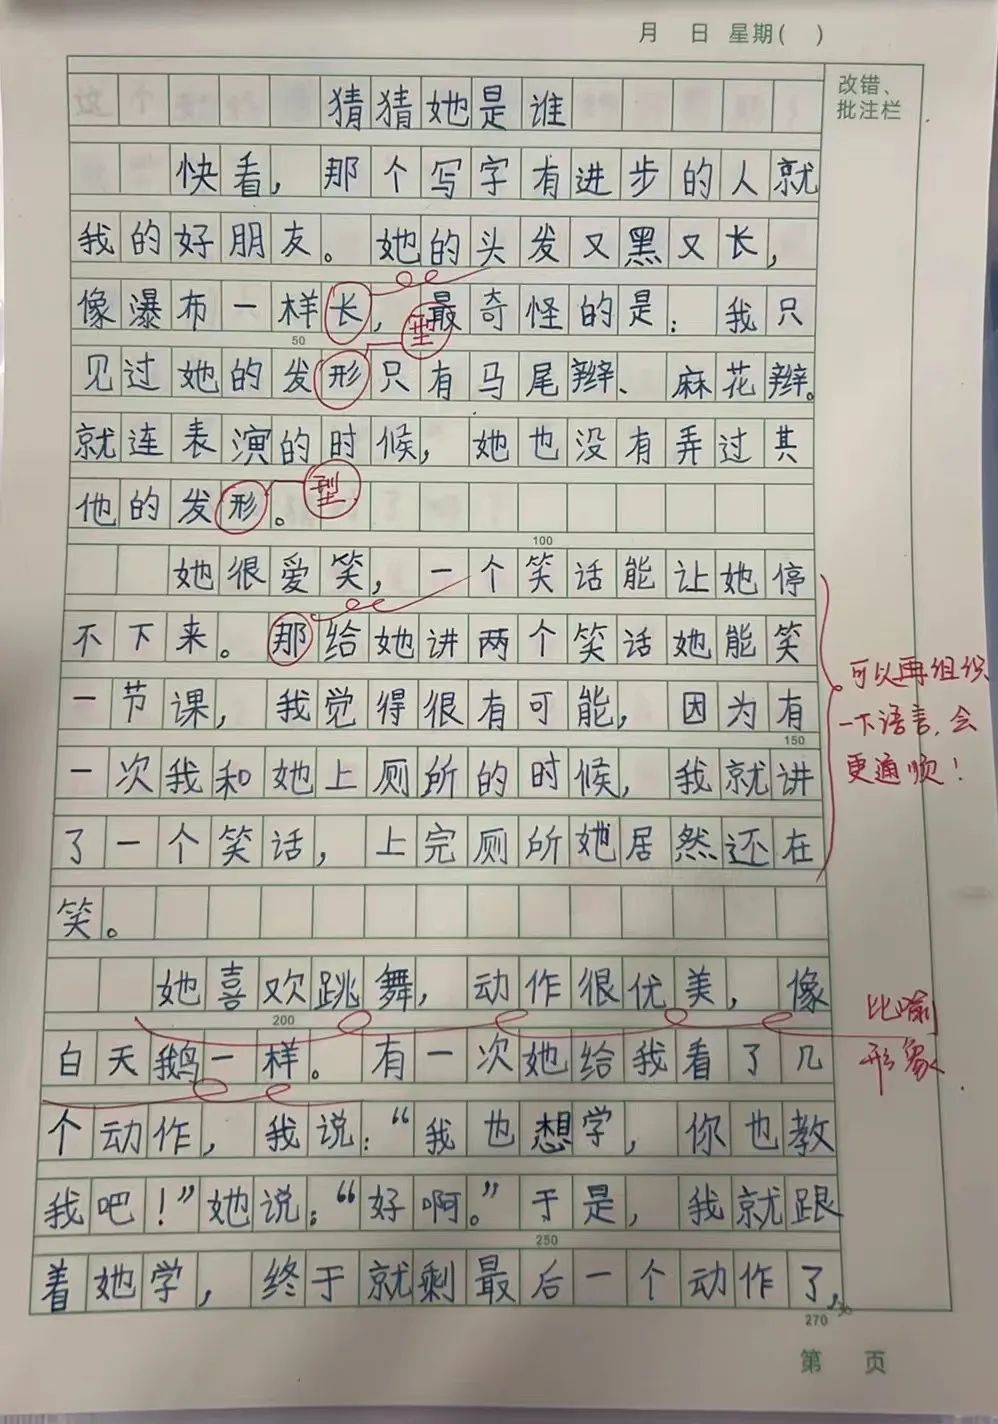 月 日 星期( )
改错、
批注栏
猜猜她是谁
快看，那个写字有进步的人就
我的好朋友。她的头发又黑又长，
像瀑布一样长，最奇怪的是：我只
型
50
见过她的发形只有马尾辫、麻花辫。
就连表演的时候，她也没有弄过其
他的发形。
型
100
她很爱笑，一个笑话能让她停
不下来。那给她讲两个笑话她能笑
一节课，我觉得很有可能，因为有
150
一次我和她上厕所的时候，我就讲
了一个笑话，上完厕所她居然还在
笑。
可以再组织
一下语言，会
更通顺！
她喜欢跳舞，动作很优美，像
200
白天鹅一样。有一次她给我看了几
比喻
形象.
个动作，我说：“我也想学，你也教
我吧！”她说：“好啊。”于是，我就跟
250
着她学，终于就剩最后一个动作了，
270
第 页